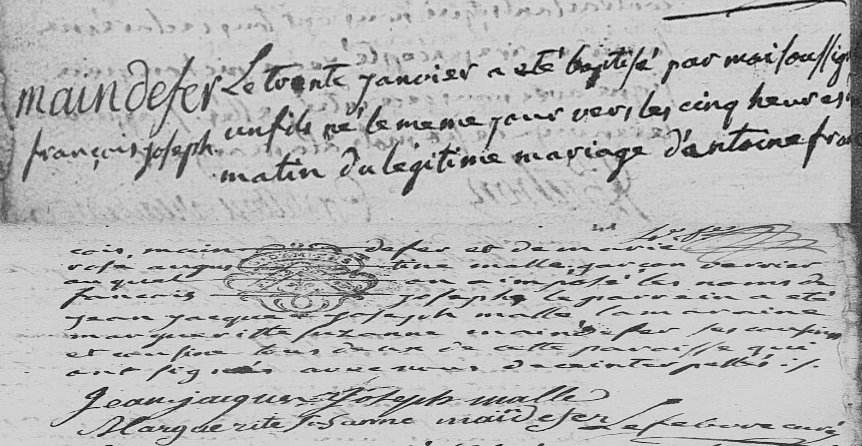 maindefer Le trente janvier a eté baptisé par moi soussign
françois joseph un fils né le meme jour vers les cinq heures
matin du légitime mariage d'antoine fran
cois main defer et de marie
rose augus tine malle garcon verrier
auquel on a imposé les noms de
francois joseph le parrein a eté
jean jacque joseph malle la maraine
margueritte suzanne maindefer ses cousin
et cousine tous deux de cette paroisse qui
ont signés avec nous de ce interpellés
Jean jacques Joseph malle
Marguerite Susanne maïdefer Lefebvre curé